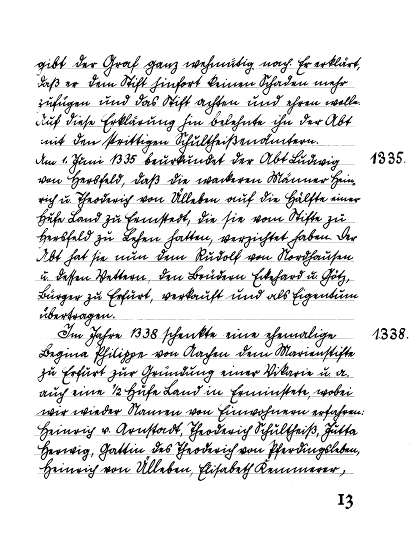 gibt der Graf ganz wehmütig nach. Er erklärt,
daß er dem Stift hinfort keinen Schaden mehr
zufügen und das Stift achten und ehren wolle.
Auf diese Erklärung hin belehnte ihn der Abt
mit den strittigen Schultheißenämtern.
Am 1. Juni 1335 beurkundet der Abt Ludwig
1335.
von Hersfeld, daß die wackeren Männer Hein-
rich u. Theoderich von Ülleben auf die Hälfte einer
Hufe Land zu Ermstedt, die sie vom Stifte zu
Hersfeld zu Lehen hatten, verzichtet haben. Der
Abt hat sie nun dem Rudolf von Nordhausen
u. dessen Vettern, den Brüdern Eckehard u. Götz,
Bürger zu Erfurt, verkauft und als Eigentum
übertragen.
Im Jahre 1338 schenkte eine ehemalige
1338.
Begina Philippe von Aachen dem Marienstifte
zu Erfurt zur Gründung einer Vikarie u. a.
auch eine ½ Hufe Land in Erministete, wobei
wir wieder Namen von Einwohnern erfahren:
Heinrich v. Arnstadt, Theoderich Schultheiß, Jutta
Herwig, Gattin des Theoderich von Pferdingsleben,
Heinrich von Ülleben, Elisabeth Kemmerer,
13